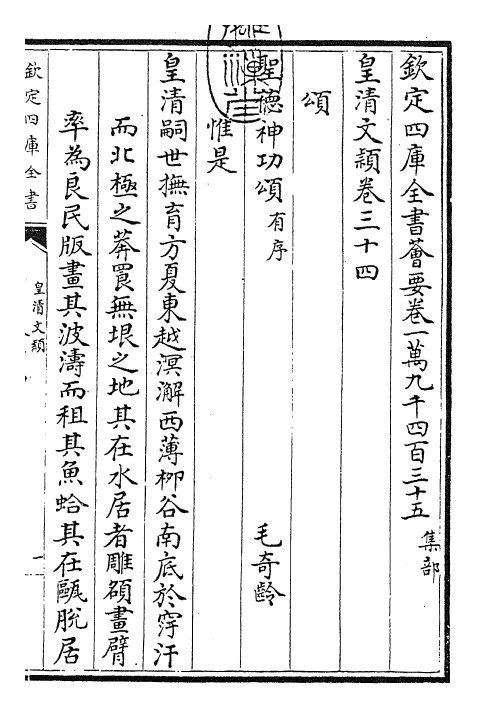 欽定四庫全書薈要卷一萬九千四百三十五 集部
皇清文穎卷三十四
頌
聖德神功頌 有序 毛奇齡
惟是
皇清嗣世撫育方夏東越溟澥西薄桺谷南底於穿汗
而北極之莽罠無垠之地其在水居者雕頟畫臂
率為良民版畫其波濤而租其魚蛤其在甌脫居
欽定四庫全書
皇清文穎
一